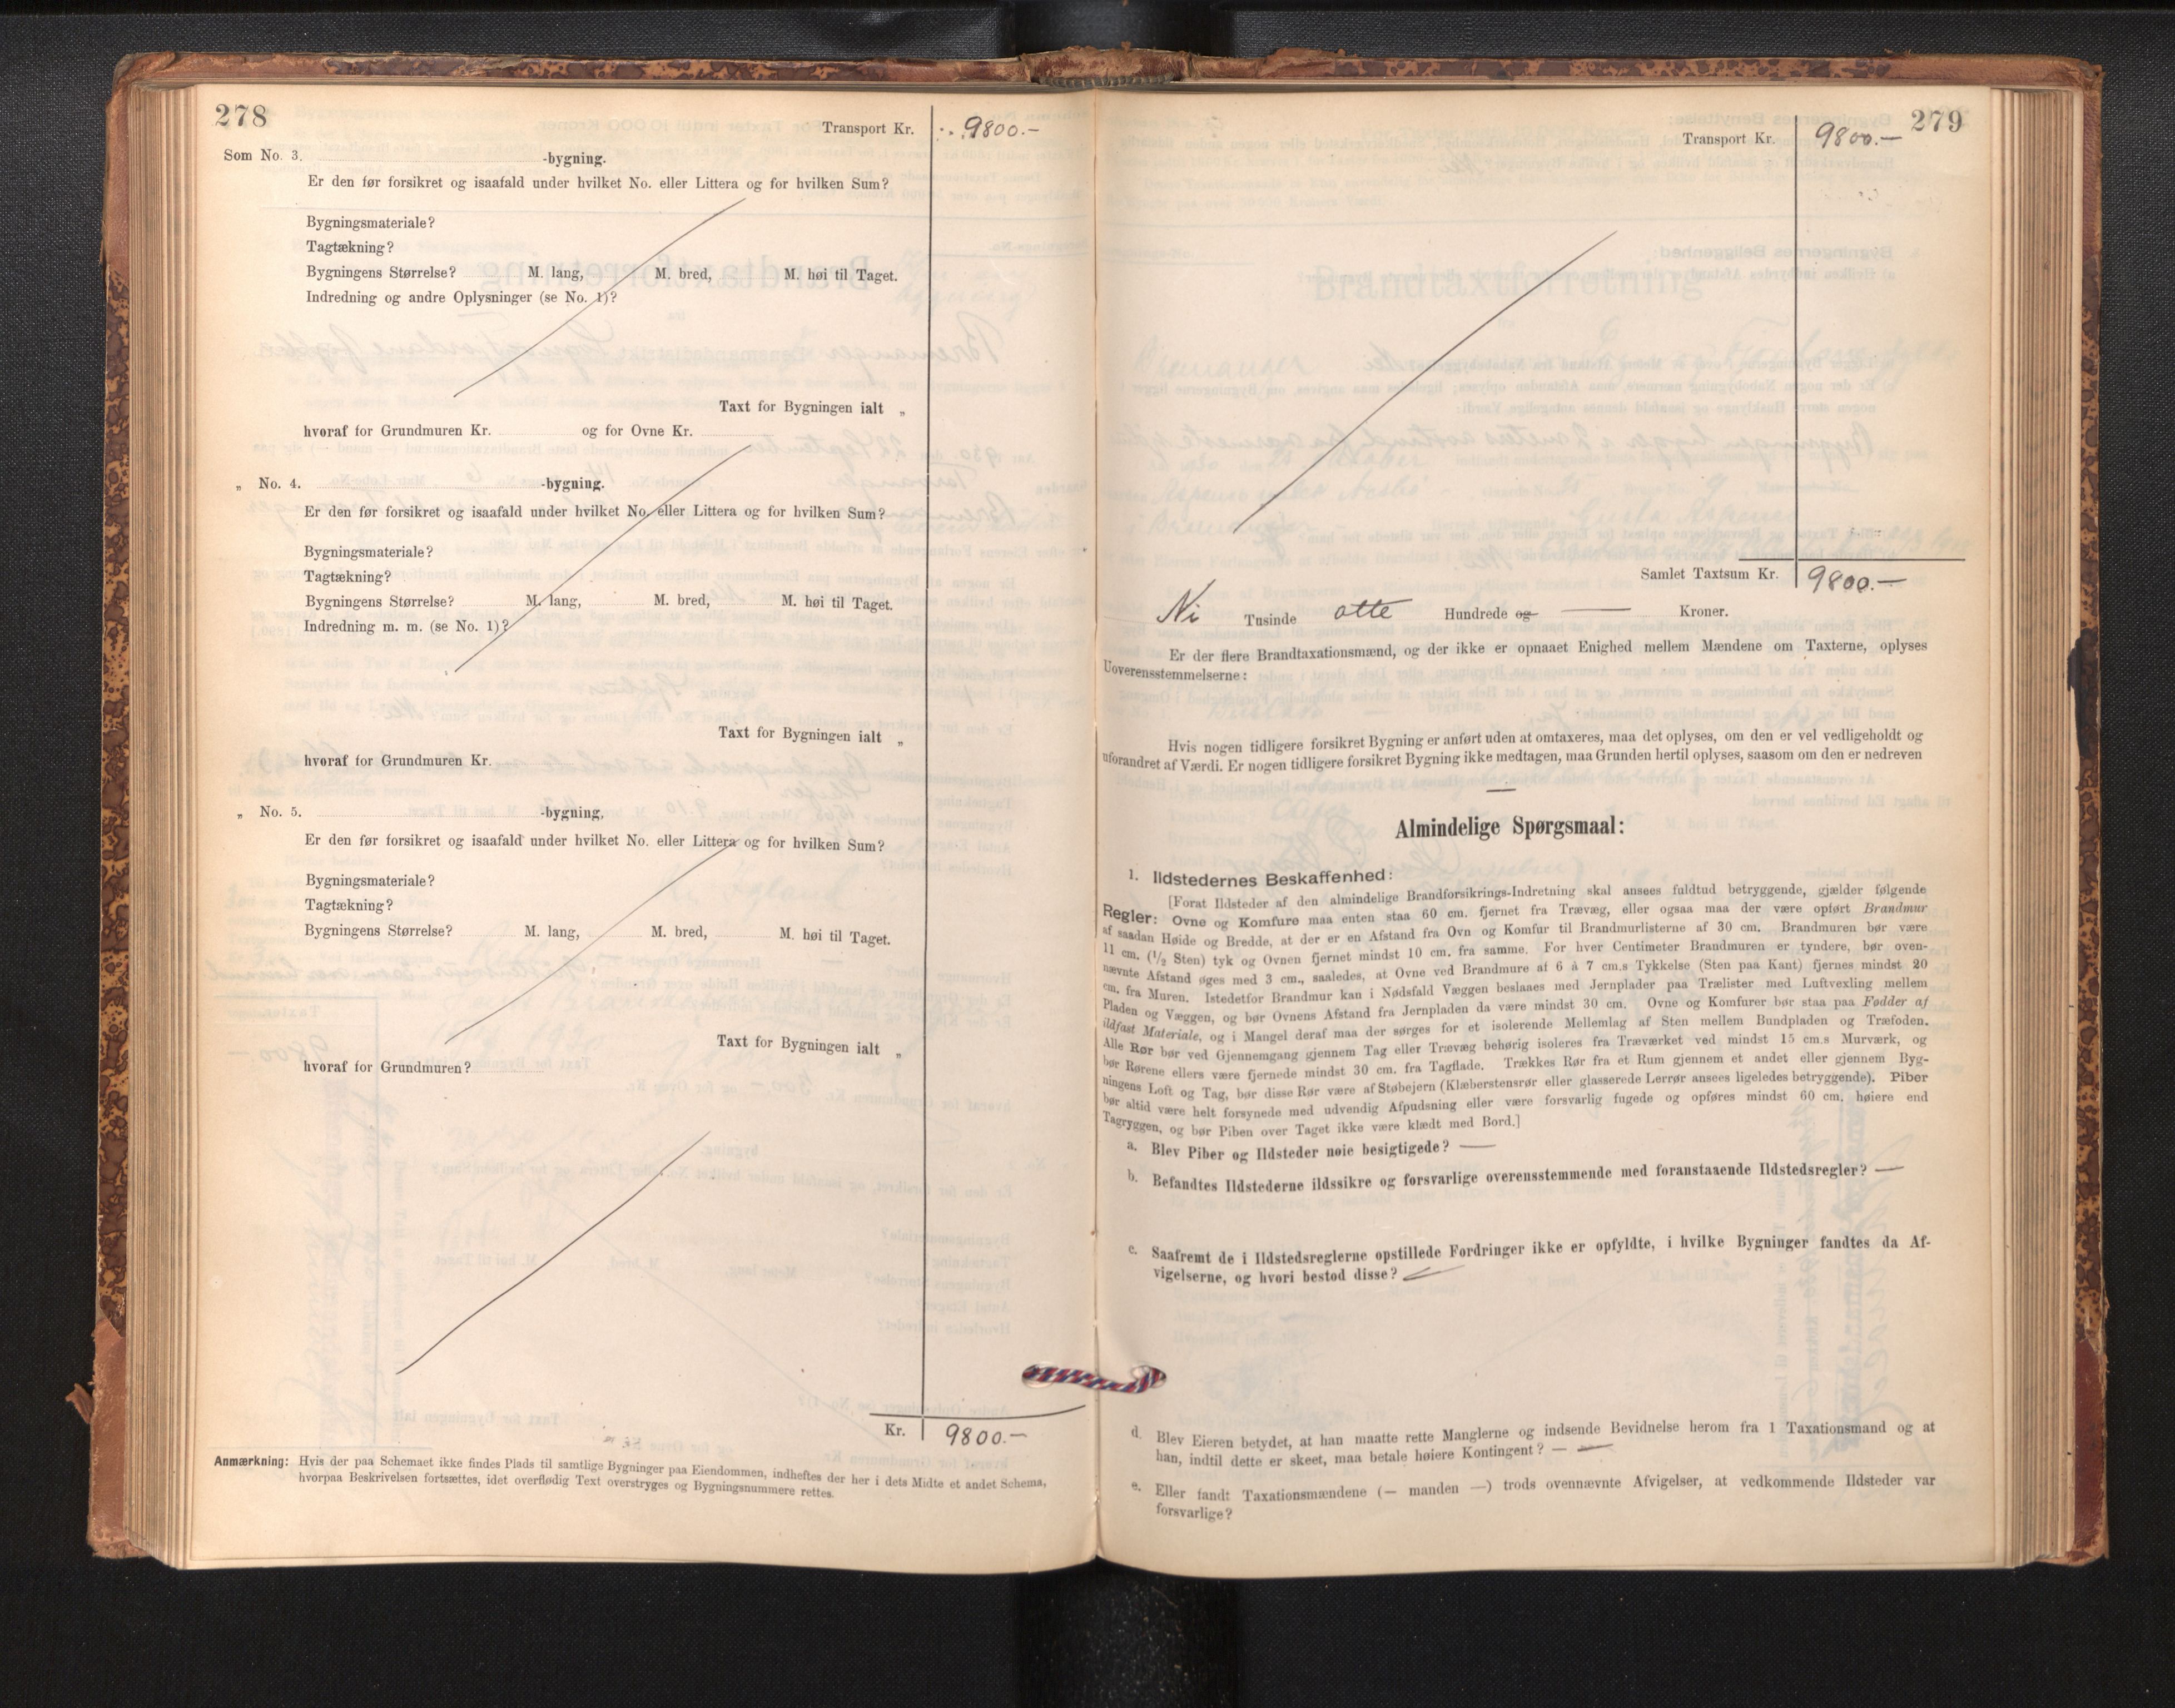 278
Transport Kr. 9800.-
Som No. 3. -bygning.
Er den før forsikret og isaafald under hvilket No. eller Littera og for hvilken Sum?
Bygningsmateriale?
Tagtækning?
Bygningens Størrelse? M. lang, M. bred, M. høi til Taget.
Indredning og andre Oplysninger (se No. 1)?
Taxt for Bygningen ialt „
hvoraf for Grundmuren Kr. og for Ovne Kr.
„ No. 4. -bygning.
Er den før forsikret og isaafald under hvilket No. eller Littera og for hvilken Sum?
Bygningsmateriale?
Tagtækning?
Bygningens Størrelse? M. lang, M. bred, M. høi til Taget.
Indredning m. m. (se No. 1)?
Taxt for Bygningen ialt „
hvoraf for Grundmuren Kr.
„ No. 5. -bygning,
Er den før forsikret og isaafald under hvilket No. eller Littera og for hvilken Sum?
Bygningsmateriale?
Tagtækning?
Bygningens Størrelse? M. lang, M. bred, M. høi til Taget.
Taxt for Bygningen ialt „
hvoraf for Grundmuren?
Kr. 9800.-
Anmærkning: Hvis der paa Schemaet ikke findes Plads til samtlige Bygninger paa Eiendommen, indheftes der her i dets Midte et andet Schema,
hvorpaa Beskrivelsen fortsættes, idet overflødig Text overstryges og Bygningsnummere rettes.
279
Transport Kr. 9800.-
Samlet Taxtsum Kr. 9800.-
Ni Tusinde otte Hundrede og — Kroner.
Er der flere Brandtaxationsmænd, og der ikke er opnaaet Enighed mellem Mændene om Taxterne, oplyses
Uoverensstemmelserne:
Hvis nogen tidligere forsikret Bygning er anført uden at omtaxeres, maa det oplyses, om den er vel vedligeholdt og
uforandret af Værdi. Er nogen tidligere forsikret Bygning ikke medtagen, maa Grunden hertil oplyses, saasom om den er nedreven
—
Almindelige Spørgsmaal:
1. Ildstedernes Beskaffenhed:
[Forat Ildsteder af den almindelige Brandforsikrings-Indretning skal ansees fuldtud betryggende, gjælder følgende
Regler: Ovne og Komfure maa enten staa 60 cm. fjernet fra Trævæg, eller ogsaa maa der være opført Brandmur
af saadan Høide og Bredde, at der er en Afstand fra Ovn og Komfur til Brandmurlisterne af 30 cm. Brandmuren bør være
11 cm. (1/2 Sten) tyk og Ovnen fjernet mindst 10 cm. fra samme. For hver Centimeter Brandmuren er tyndere, bør oven-
nævnte Afstand øges med 3 cm., saaledes, at Ovne ved Brandmure af 6 à 7 cm.s Tykkelse (Sten paa Kant) fjernes mindst 20
cm. fra Muren. Istedetfor Brandmur kan i Nødsfald Væggen beslaaes med Jernplader paa Trælister med Luftvexling mellem
Pladen og Væggen, og bør Ovnens Afstand fra Jernpladen da være mindst 30 cm. Ovne og Komfurer bør staa paa Fødder af
ildfast Materiale, og i Mangel deraf maa der sørges for et isolerende Mellemlag af Sten mellem Bundpladen og Træfoden.
Alle Rør bør ved Gjennemgang gjennem Tag eller Trævæg behørig isoleres fra Træværket ved mindst 15 cm.s Murværk, og
bør Rørene ellers være fjernede mindst 30 cm. fra Tagflade. Trækkes Rør fra et Rum gjennem et andet eller gjennem Byg-
ningens Loft og Tag, bør disse Rør være af Støbejern (Klæberstensrør eller glasserede Lerrør ansees ligeledes betryggende). Piber
bør altid være helt forsynede med udvendig Afpudsning eller være forsvarlig fugede og opføres mindst 60 cm. høiere end
Tagryggen, og bør Piben over Taget ikke være klædt med Bord.]
a. Blev Piber og Ildsteder nøie besigtigede? —
b. Befandtes Ildstederne ildssikre og forsvarlige overensstemmende med foranstaaende Ildstedsregler? —
c. Saafremt de i Ildstedsreglerne opstillede Fordringer ikke er opfyldte, i hvilke Bygninger fandtes da Af-
vigelserne, og hvori bestod disse? —
d. Blev Eieren betydet, at han maatte rette Manglerne og indsende Bevidnelse herom fra 1 Taxationsmand og at
han, indtil dette er skeet, maa betale høiere Kontingent? — —
e. Eller fandt Taxationsmændene (— manden —) trods ovennævnte Afvigelser, at vedkommende Ildsteder var
forsvarlige?